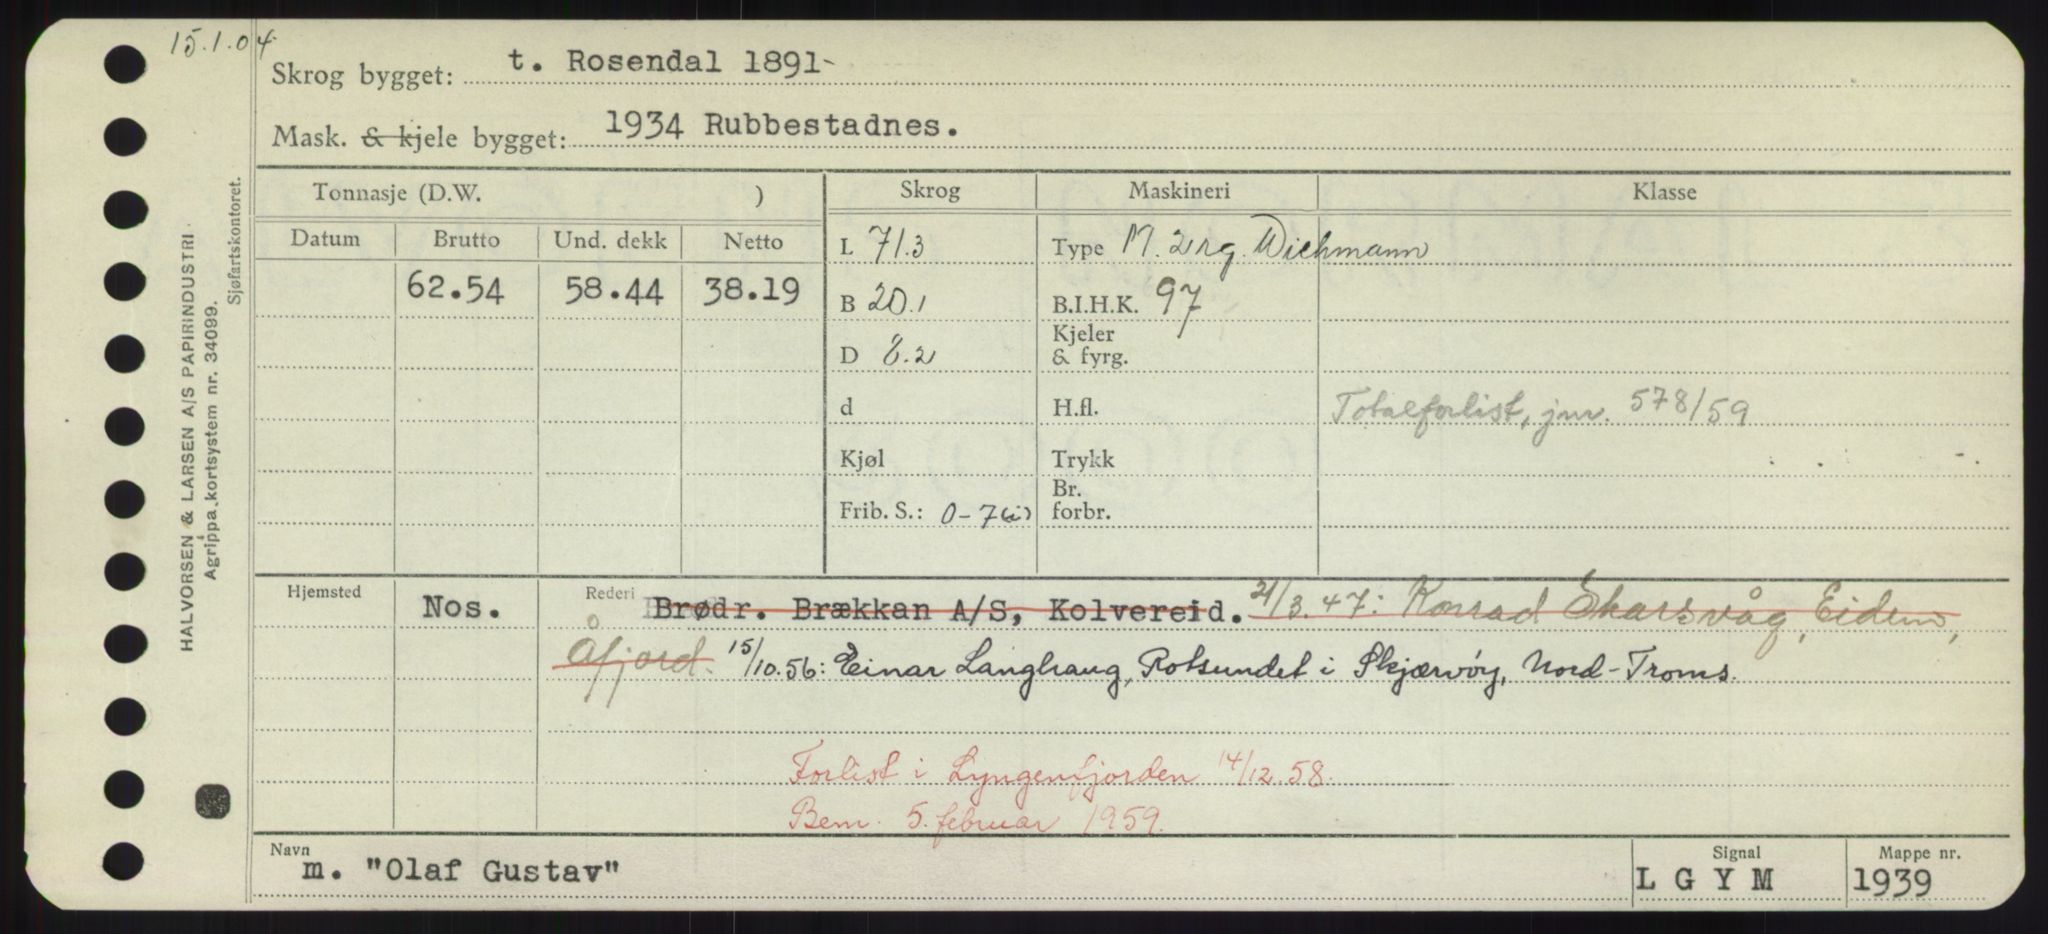 15.1.04
Skrog bygget: t. Rosendal 1891-
Mask. & kjele bygget: 1934 Rubbestadnes.
HALVORSEN & LARSEN A/S PAPIRINDUSTRI
Agrippa kortsystem nr. 34099.
Sjøfartskontoret.
Tonnasje (D.W. )
Skrog
Maskineri
Klasse
Datum Brutto Und. dekk Netto
62.54 58.44 38.19
L 71.3
B 20.1
D 8.2
d
Kjøl
Frib. S.: 0-7
Type M. 2 sg. Wichmann
B.I.H.K. 97
Kjeler
& fyrg.
H.fl.
Trykk
Br.
forbr.
Totalforlist, jnr. 578/59
Hjemsted
Nos.
Rederi
Brødr. Brækkan A/S, Kolvereid. 21/3.47: Konrad Skarsvåg, Eidem,
Åfjord. 15/10.56: Einar Langhaug, Rotsundet i Skjærvöy, Nord-Troms.
Forlist i Lyngenfjorden 14/12.58.
Bem. 5. februar 1959.
Navn
m. "Olaf Gustav"
Signal
L G Y M
Mappe nr.
1939